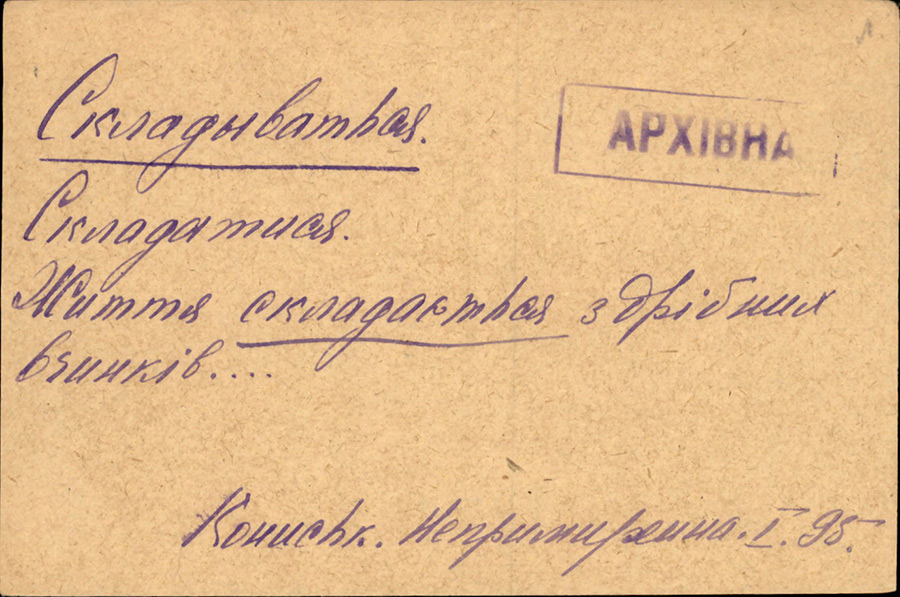 Складываться.
АРХІВНА
Складатися.
Життя складається з дрібних
вчинків....
Кониськ. Непримиренна. I. 95.